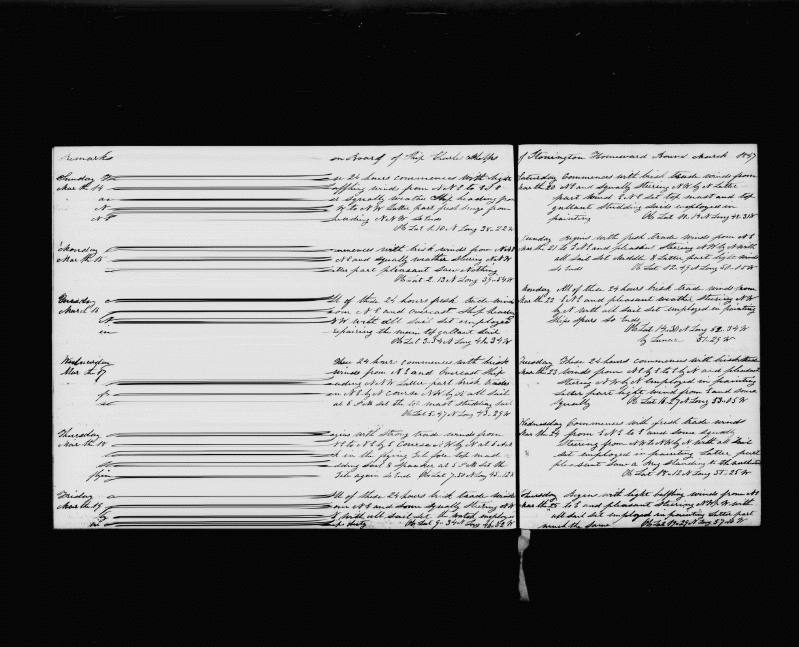 Remarks on Board of Ship Charles Phelps
Sunday
March 14 24 hours commences with light
baffling winds from N E to S E
squally weather Ship heading from
to N W Latter part fresh tugs from
heading N N W So Ends
Ob Lat 1.10 N Long 38.22 W
Monday commences with brisk winds from N N E
March 15 N E and squally weather Steering N N W
Latter part pleasant Saw Nothing
Ob Lat 2.13 N Long 39.54 W
Tuesday All of these 24 hours fresh trade winds
March 16 from N E and overcast Ship heading
N W with all sail set employed
in repairing the main top gallant sail
Ob Lat 3.34 N Long 41.34 W
Wednesday These 24 hours commences with brisk
March 17 winds from N E and Overcast Ship
heading N N W Latter part brisk trades
from N E by E Course N W by N all sail
set at 5 P M set the top mast studding sail
Ob Lat 5.47 N Long 43.29 W
Thursday Begins with strong trade winds from
March 18 N E to N E by E Course N W by N at 6 A M
in the flying Jib fore top mast
studding sail & Spanker at 5 P M set the
flying Jib again so Ends Ob Lat 7.50 N Long 45.12 W
Friday All of these 24 hours brisk trade winds
March 19 from N E and some squally Steering N W
by N with all sail set the watch employed
in ships duty Ob Lat 9.34 N Long 46.52 W
of Stonington Homeward Bound March 1847
Saturday Commences with brisk trade winds from
March 20 N E and squally Steering N W by N Latter
part wind E N E set top mast and top
gallant studding sails employed in
painting Ob Lat 11.14 N Long 48.31 W
Sunday Begins with fresh trade winds from N E
March 21 to E N E and pleasant Steering N W by N with
all sail set Middle & Latter part light winds
so Ends Ob Lat 12.47 N Long 50.05 W
Monday All of these 24 hours brisk trade winds from
March 22 E N E and pleasant weather steering N W
by N with all sail set employed in painting
Ships spars so Ends
Ob Lat 14.30 N Long 52.34 W
by Lunar 51.29 W
Tuesday These 24 hours commences with brisk trade
March 23 winds from N E by E to E by N and pleasant
Steering N W by N employed in painting
Latter part light wind from E and some
squally Ob Lat 16.27 N Long 53.05 W
Wednesday Commences with fresh trade winds
March 24 from E N E to E and some squally
Steering from N W to N W by N with all sail
set employed in painting Latter part
pleasant Saw a Brig Standing to the northward
Ob Lat 18.12 N Long 55.25 W
Thursday Begin with light baffling winds from N E
March 25 to E and pleasant Steering N W by W with
all sail set employed in painting Latter part
much the same Ob Lat 19.29 N Long 57.26 W